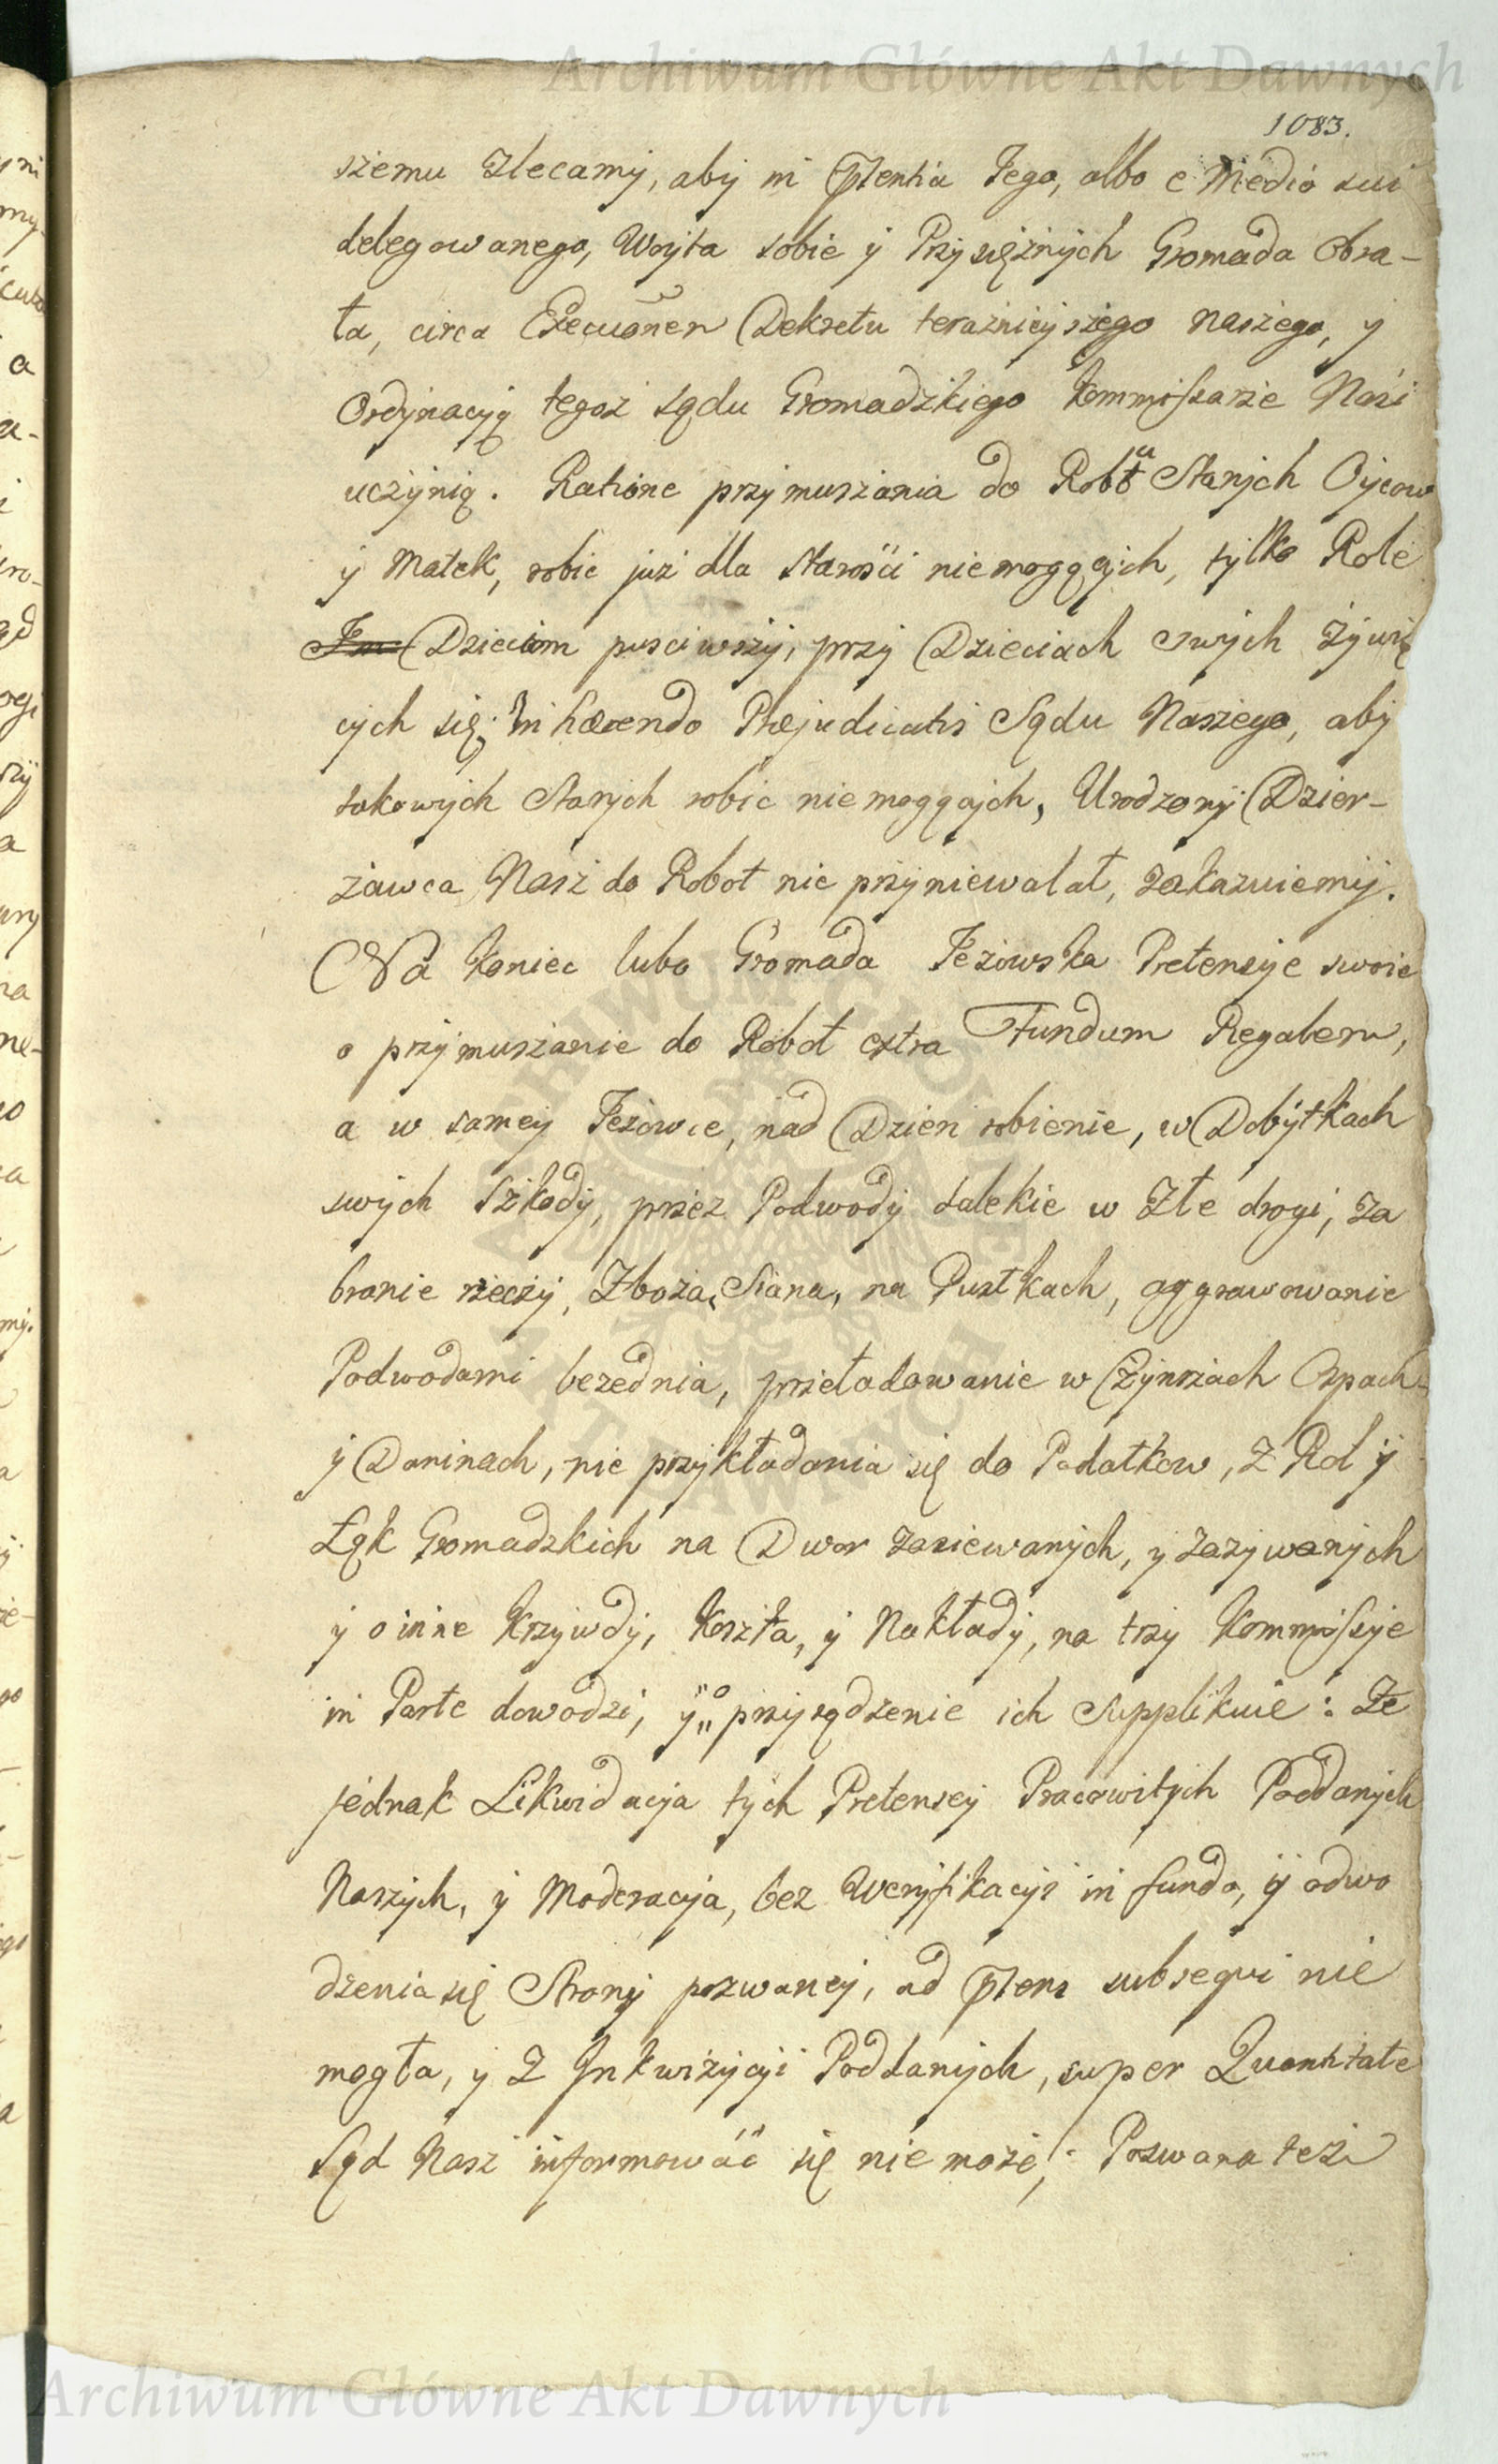 Archiwum Główne Akt Dawnych
1083.
szemu Zlecamy, aby in Pntia Jego, albo e Medio sui
delegowanego, Woyta sobie y Przysiężnych Gromada Obra-
ła, circa Execuonem Dekretu teraznieyszego naszego, y
Ordynacyą tegoz sądu Gromadzkiego Kommissarze Nasi
uczynią. Ratione przymuszania do Robot Starych Oycow
y Matek, robic juz dla Starosci niemogących, tylko Role
Dzieciom pusciwszy, przy Dzieciach swych żywią
cych się; Inhærendo Præjudicatis Sądu Naszego, aby
takowych Starych robic niemogących, Urodzony Dzier-
zawca Nasz do Robot nie przyniewalał, zakazuiemy.
Na Koniec lubo Gromada Jeżowska Pretensye swoie
o przymuszanie do Robot extra Fundum Regalem,
a w samey Jeżowie, nad Dzien robienie, w Dobytkach
swych Szkody, przez Podwody dalekie w Złe drogi, Za
branie rzeczy, Zboża, Siana, na Pustkach, aggrawowanie
Podwodami bezednia, przeładowanie w Czynszach Ospach
y Daninach, nie przykładania się do Podatkow, z Rol y
Łąk Gromadzkich na Dwor zasiewanych, y zazywanych
y o inne Krzywdy, Koszta, y Nakłady, na trzy Kommissye
in Parte dowodzi, y o przysądzenie ich Supplikuie: Że
jednak Likwidacya tych Pretensey Pracowitych Poddanych
Naszych, y Moderacya, bez Weryfikacyi in fundo, y odwo
dzenia się Strony pozwaney, ad Pns subsequi nie
mogła, y z Inkwizycyi Poddanych, super Quantitate
Sąd Nasz informować się nie może; Pozwana też
Archiwum Główne Akt Dawnych